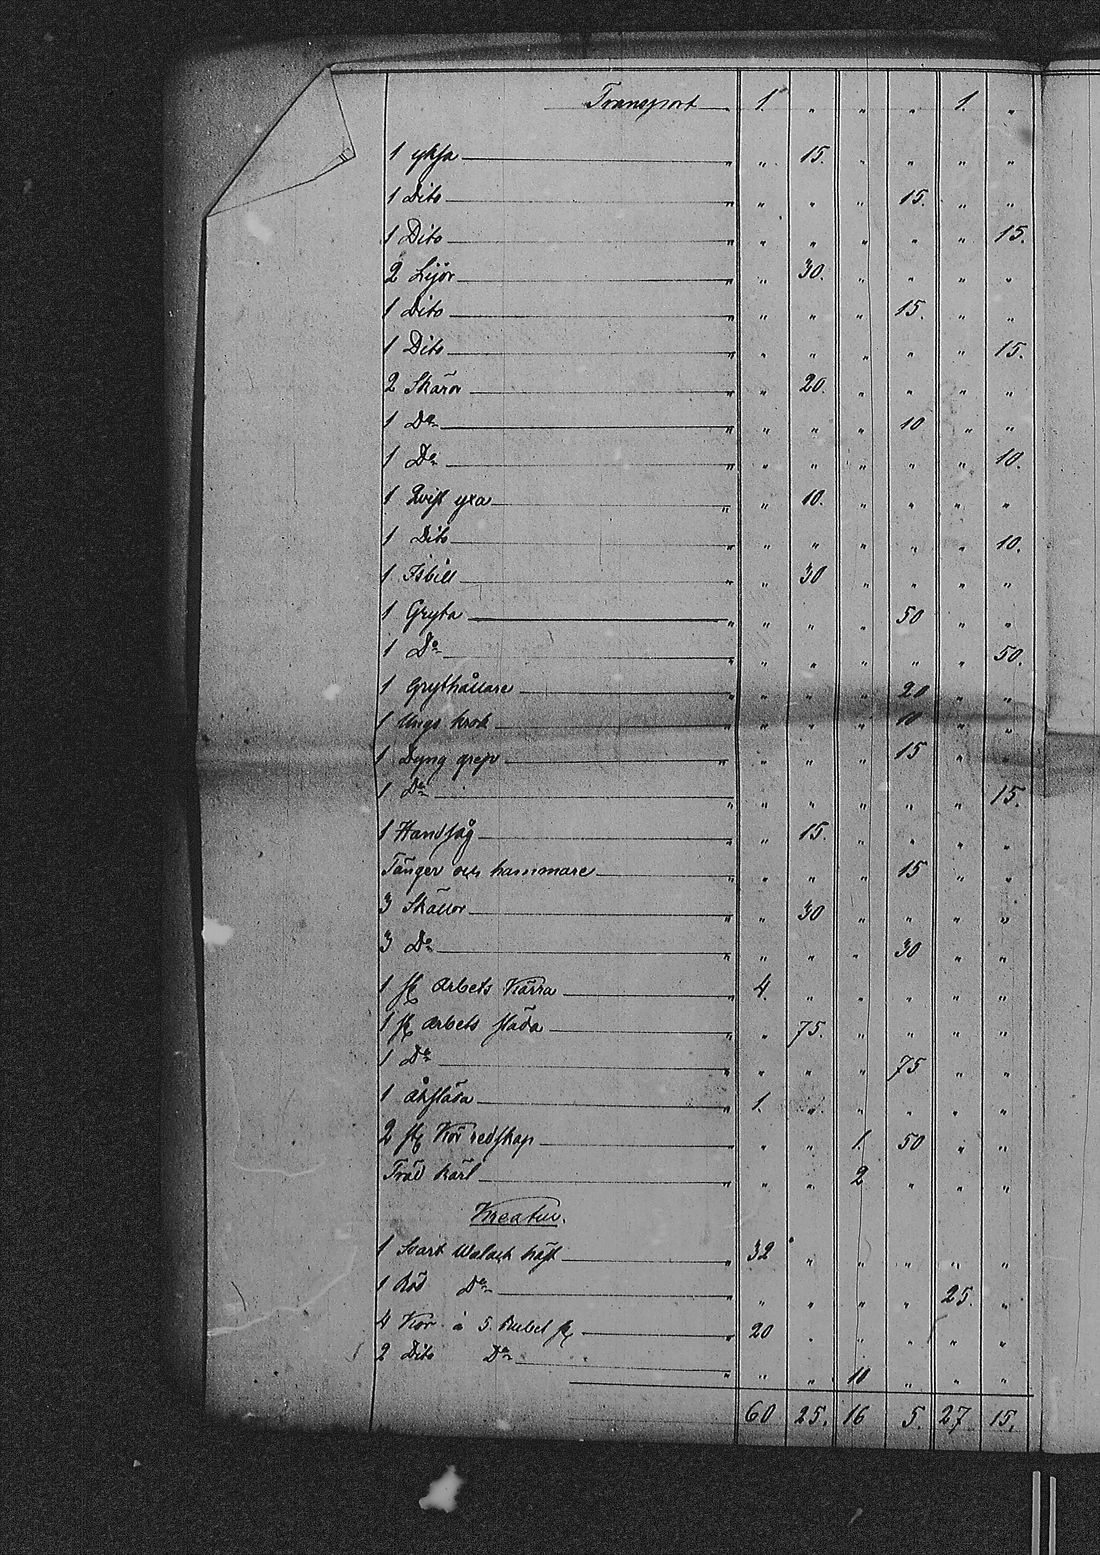 Transport 1. „ „ „ 1. „
1 yksa „ „ 15. „ „ „ „
1 Dito „ „ „ „ 15. „ „
1 Dito „ „ „ „ „ „ 15.
2 Lijor „ „ 30. „ „ „ „
1 Dito „ „ „ „ 15. „ „
1 Dito „ „ „ „ „ „ 15.
2 Skäror „ „ 20. „ „ „ „
1 Do „ „ „ „ 10 „ „
1 Do „ „ „ „ „ „ 10.
1 Qvist yxa „ „ 10. „ „ „ „
1 Dito „ „ „ „ „ „ 10.
1 Isbill „ „ 30 „ „ „ „
1 Gryta „ „ „ „ 50 „ „
1 Do „ „ „ „ „ „ 50.
1 Grythållare „ „ „ „ 20 „ „
1 Ungs krok „ „ „ „ 10 „ „
1 Dyng grep „ „ „ „ 15 „ „
1 Do „ „ „ „ „ „ 15.
1 Handsåg „ „ 15. „ „ „ „
Tänger och hammare „ „ „ „ 15 „ „
3 Skällor „ „ 30 „ „ „ „
3 Do „ „ „ „ 30 „ „
1 st Arbets Kärra „ 4. „ „ „ „ „
1 st Arbets släda „ „ 75. „ „ „ „
1 Do „ „ „ „ 75 „ „
1 Åksläda „ 1. „ „ „ „ „
2 st Kör redskap „ „ „ 1. 50 „ „
Träd kärl „ „ „ 2 „ „ „
Kreatur.
1 Svart Walack häst „ 32 „ „ „ „ „
1 Röd Do „ „ „ „ „ 25. „
4 Kor à 5. Rubel st „ 20 „ „ „ „ „
2 Dito Do „ „ „ 10 „ „ „
60 25. 16 5. 27 15.